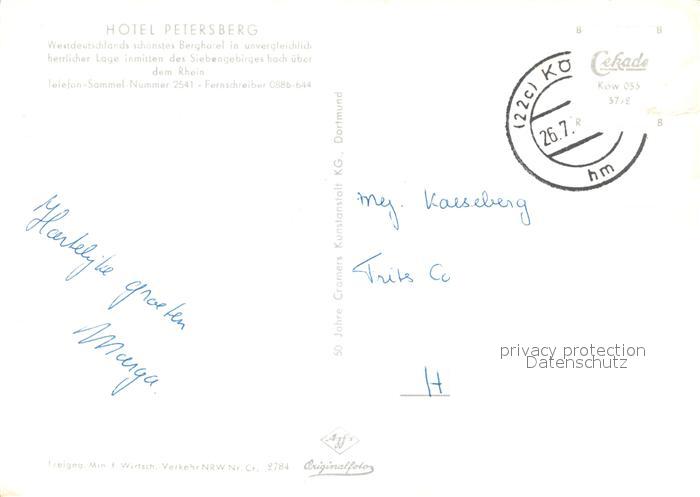 HOTEL PETERSBERG
Westdeutschlands schönstes Berghotel in unvergleichlich
herrlicher Lage inmitten des Siebengebirges hoch über
dem Rhein
Telefon-Sammel-Nummer 2541 - Fernschreiber 0886-644
B B
Cekade
Köw 055
R B
(22c) KÖ
26.7.
hm
50 Jahre Cramers Kunstanstalt KG., Dortmund
Mej. Kaeseberg
Frits Co
H
Hartelijke groeten
Marga.
privacy protection
Datenschutz
Freigng. Min. f. Wirtsch. Verkehr NRW Nr. Cr. 2784
Agfa
Originalfoto